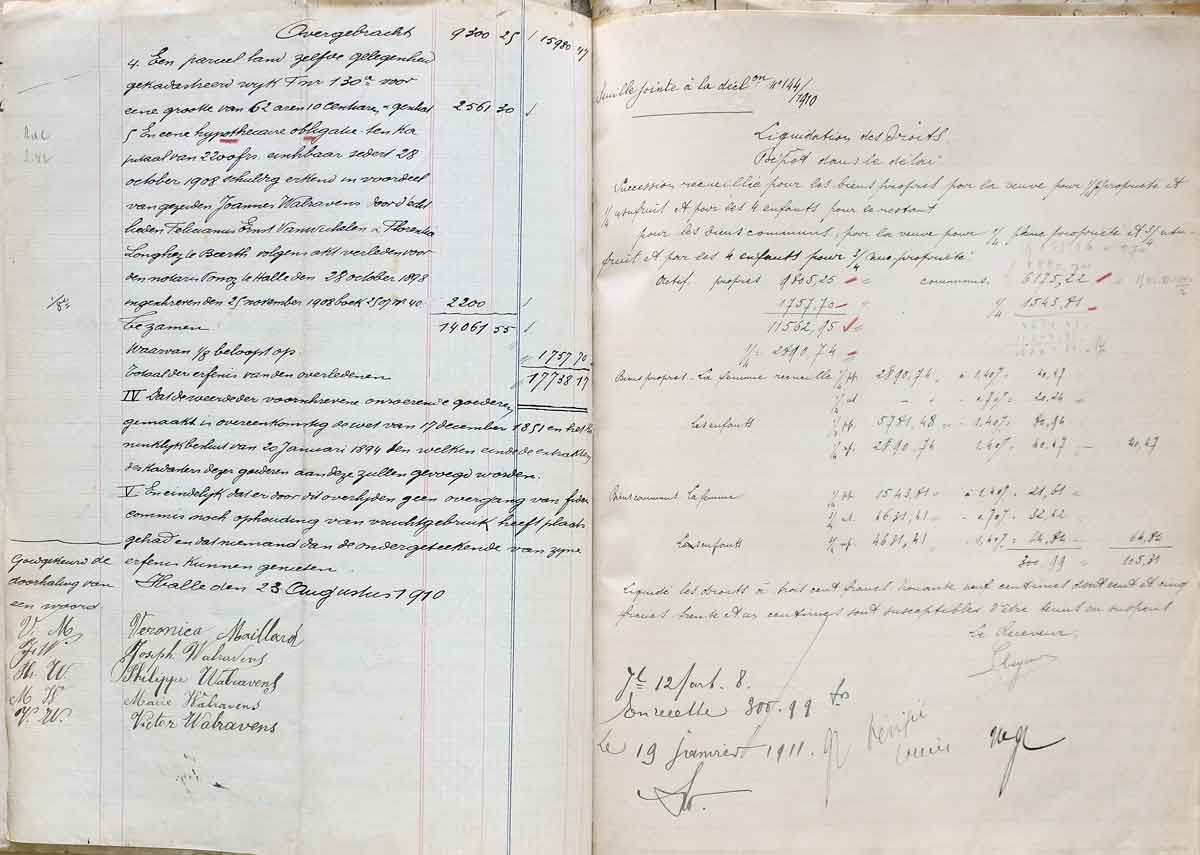 Overgebracht 9300 25 / 15980 47
4. Een perceel land zelfde gelegenheid
gekadastreerd wijk F nr 130a voor
eene grootte van 62 aren 10 centiare, geschat 2561 30
5 En eene hypothecaire obligatie ten ka
pitaal van 2200 frs. einbaar sedert 28
october 1908 schuldig erkend in voordeel
van gezeiden Joannes Walravens door de echt
lieden Felicianus Ernst Vanwichelen & Florentia
Longhez te Beerth volgens akt verleden voor
den notaris te Halle den 28 october 1898
ingeschreven den 25 november 1908 boek 2507 nr 40 2200
te zamen 14061 55
Waarvan 1/8 beloopt op 1757 70
Totaal der erfenis van den overledenen 17738 17
IV Dat de weerde der voorschrevene onroerende goederen
gemaakt is overeenkomstig de wet van 17 december 1851 en het ko
ninklijk besluit van 20 Januari 1894 ten welken einde de extrakten
des kadasters dezer goederen aan deze zullen gevoegd worden.
V En eindelijk dat er door dit overlijden geen overgang van fidei
commis noch ophouding van vruchtgebruik heeft plaats
gehad en dat niemand dan de ondergeteekende van zijne
erfenis kunnen genieten.
Halle den 23 Augustus 1910
Goedgekeurd de
doorhaling van
een woord
V. M. Veronica Maillard
J. W. Joseph Walravens
Ph. W. Philippe Walravens
M. W. Marie Walravens
V. W. Victor Walravens
Feuille jointe à la déclon n° 144/1910
Liquidation des Droits.
Dépôt dans le délai
Succession recueillie pour les biens propres par la veuve pour 1/4 propriété et
1/4 usufruit et pour les 4 enfants pour le restant
pour les biens communs, par la veuve pour 1/4 pleine propriété et 3/4 usu-
fruit et par les 4 enfants pour 3/4 nue propriété
Actif propres 9805,25 communs. 6175,22
1757,70 1/4 1543,81
11562,95
1/4 = 2890,74
Biens propres - La femme recueille 1/4 pp. 2890,74 à 1.40% 40,47
1/4 ut - 0.70% 20,24
Les enfants 1/2 pp. 5781,48 - 1.40% 80,94
1/4 np. 2890,74 1.40% 40,47 - 40,47
Biens communs La femme 1/4 pp 1543,81 à 1.40% 21,61
3/4 ut 4631,41 - 0.70% 32,42
Les enfants 3/4 np. 4631,41 1.40% 64,84 64,84
300,99 105,31
Liquidé les droits à trois cent francs nonante neuf centimes dont cent et cinq
francs trente et un centimes sont susceptibles d'être tenus en suspens
Le Receveur,
Sl 12 art. 8.
En recette 300.99 frs
Le 19 Janvier 1911.
Vérifié